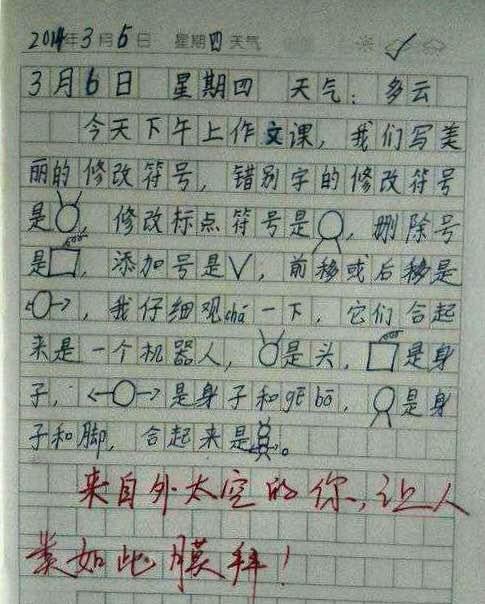 2014年3月6日 星期四 天气
3月6日 星期四 天气：多云
今天下午上作文课，我们写美
丽的修改符号，错别字的修改符号
是 修改标点符号是，删除号
是，添加号是∨，前移或后移是
←○→，我仔细观chá一下，它们合起
来是一个机器人，是头，是身
子，←○→是身子和gē bō，是身
子和脚，合起来是。
来自外太空的你，让人
类如此膜拜！